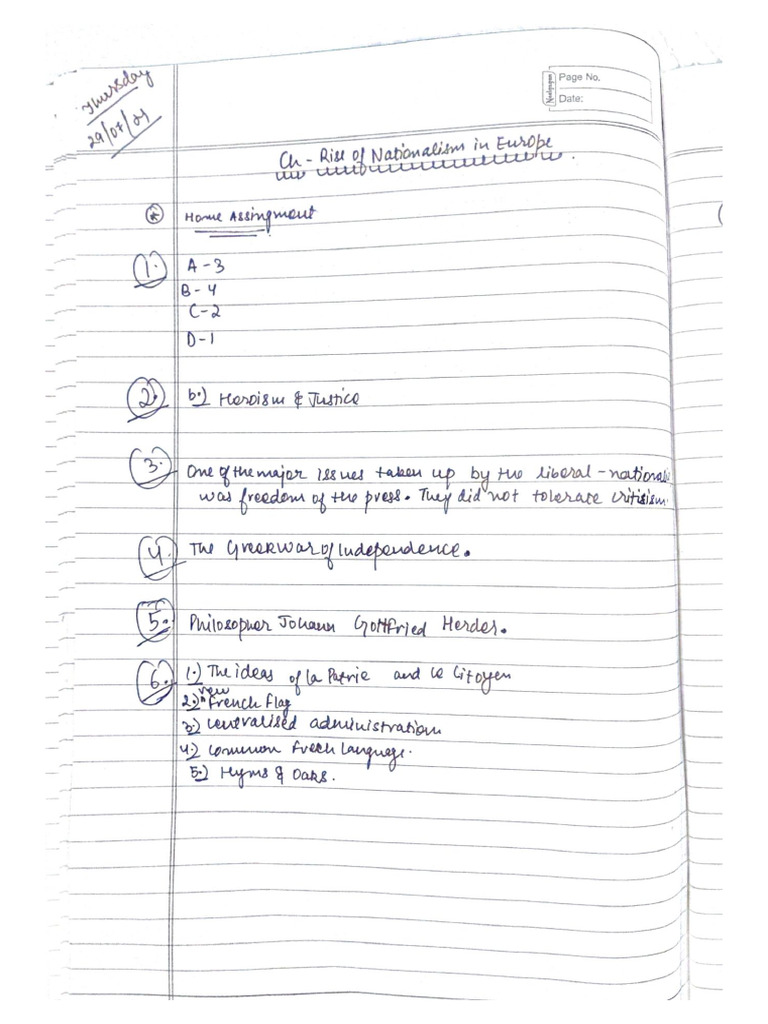 Thursday
29/07/21
Page No.
Date:
Ch - Rise of Nationalism in Europe
Home Assingment
1. A - 3
B - 4
C - 2
D - 1
2. b.) Heroism & Justice
3. One of the major issues taken up by the liberal - nationalis
was freedom of the press. They did not tolerate critisism
4. The Greek War of Independence.
5. Philosopher Johann Gottfried Herder.
6. 1.) The ideas of la Patrie and le Citoyen
2.) new French Flag
3.) Centralised administration
4.) Common Frech language.
5.) Hyms & Oaks.